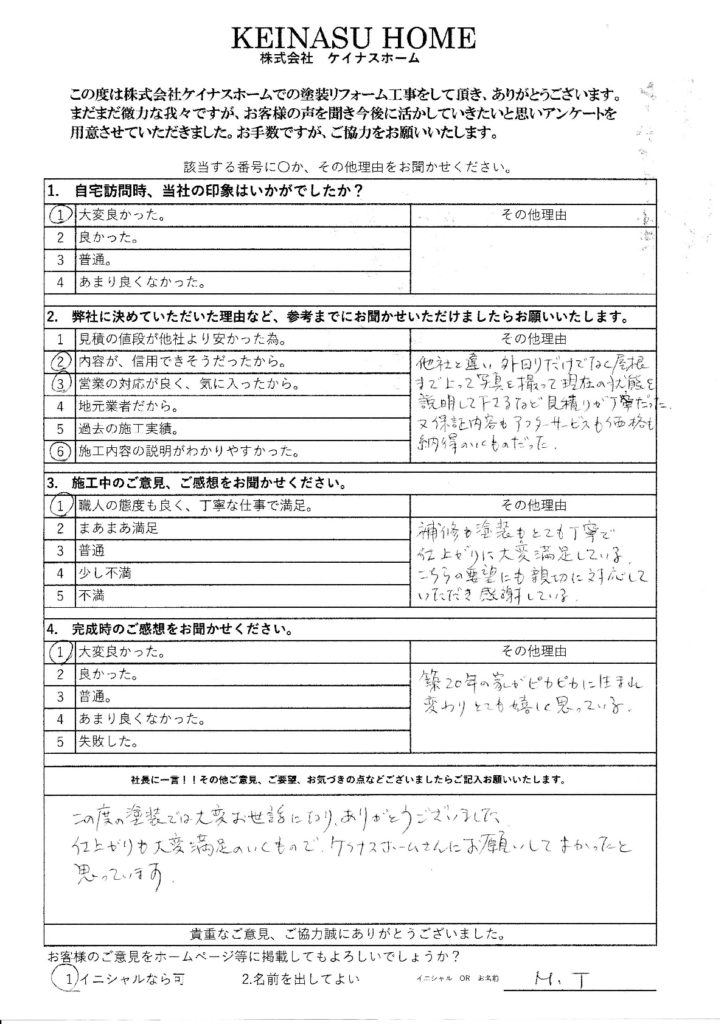 KEINASU HOME
株式会社　ケイナスホーム
この度は株式会社ケイナスホームでの塗装リフォーム工事をして頂き、ありがとうございます。
まだまだ微力な我々ですが、お客様の声を聞き今後に活かしていきたいと思いアンケートを
用意させていただきました。お手数ですが、ご協力をお願いいたします。
該当する番号に〇か、その他理由をお聞かせください。
1.　自宅訪問時、当社の印象はいかがでしたか？
1 大変良かった。 その他理由
2 良かった。
3 普通。
4 あまり良くなかった。
2.　弊社に決めていただいた理由など、参考までにお聞かせいただけましたらお願いいたします。
1 見積の値段が他社より安かった為。 その他理由
2 内容が、信用できそうだったから。
3 営業の対応が良く、気に入ったから。
4 地元業者だから。
5 過去の施工実績。
6 施工内容の説明がわかりやすかった。
他社と違い 外回りだけでなく屋根
まで上って写真を撮って現在の状態を
説明して下さるなど見積りが丁寧だった。
又保証内容もアフターサービスも価格も
納得のいくものだった。
3.　施工中のご意見、ご感想をお聞かせください。
1 職人の態度も良く、丁寧な仕事で満足。 その他理由
2 まあまあ満足
3 普通
4 少し不満
5 不満
補修も塗装もとても丁寧で
仕上がりに大変満足している。
こちらの要望にも親切に対応して
いただき感謝している。
4.　完成時のご感想をお聞かせください。
1 大変良かった。 その他理由
2 良かった。
3 普通。
4 あまり良くなかった。
5 失敗した。
築20年の家がピカピカに生まれ
変わりとても嬉しく思っている。
社長に一言！！その他ご意見、ご要望、お気づきの点などございましたらご記入お願いいたします。
この度の塗装では大変お世話になり、ありがとうございました。
仕上がりも大変満足のいくもので、ケイナスホームさんにお願いしてよかったと
思っています。
貴重なご意見、ご協力誠にありがとうございました。
お客様のご意見をホームページ等に掲載してもよろしいでしょうか？
1 イニシャルなら可　2.名前を出してよい　イニシャル OR お名前　M. T